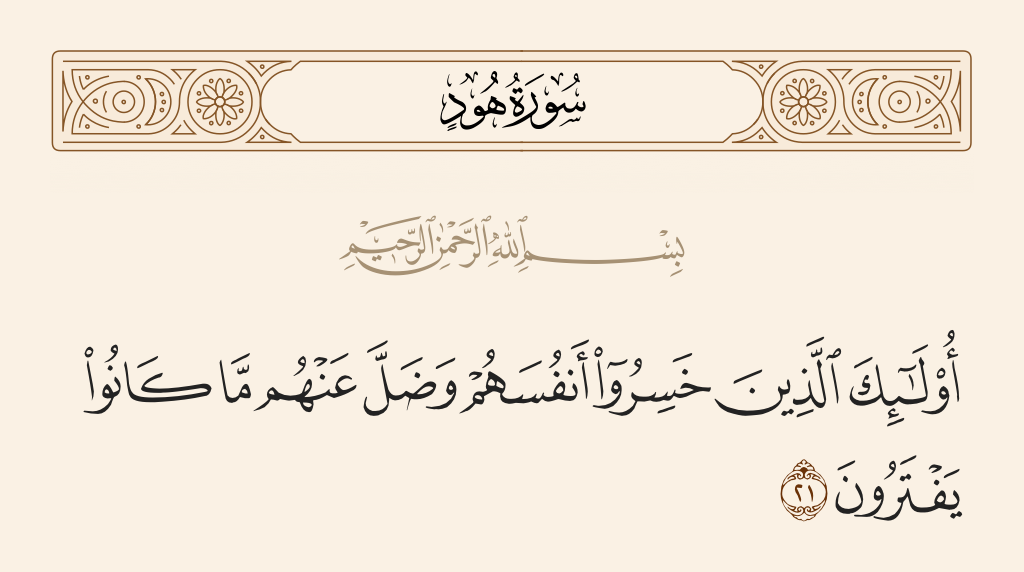 سُورَةُ هُودٍ
بِسْمِ ٱللَّهِ ٱلرَّحْمَٰنِ ٱلرَّحِيمِ
أُو۟لَـٰٓئِكَ ٱلَّذِينَ خَسِرُوٓا۟ أَنفُسَهُمْ وَضَلَّ عَنْهُم مَّا كَانُوا۟
يَفْتَرُونَ ٢١